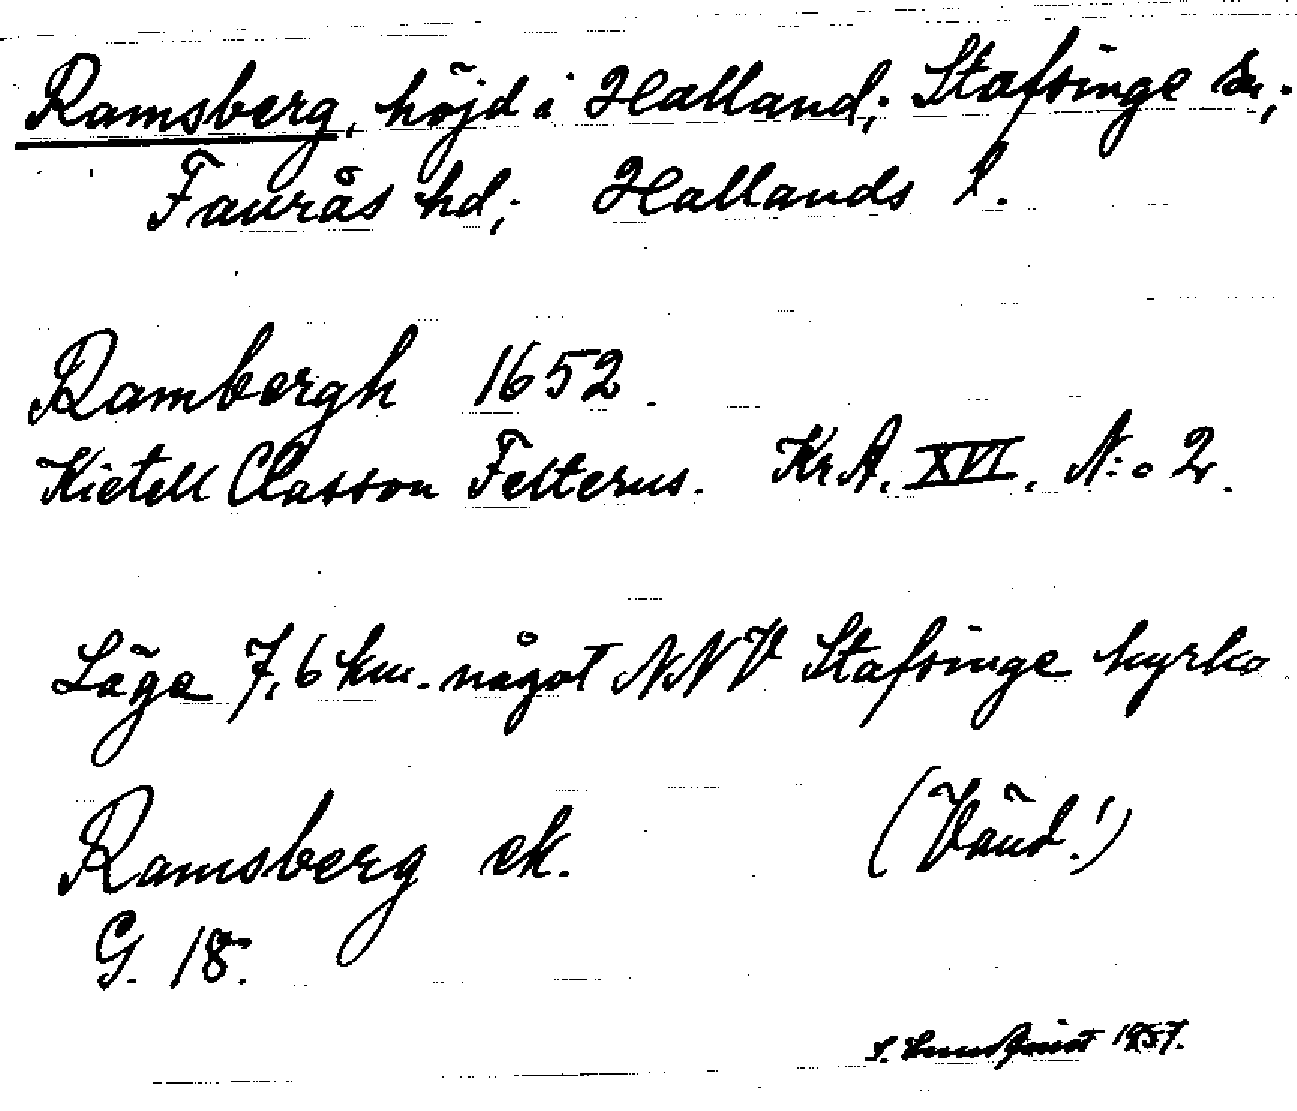 Ramsberg, höjd i Halland; Stafsinge sn;
Faurås hd; Hallands l.
Rambergh 1652.
Kietell Classon Felterus. Kr.A. XVI, N:o 2.
Läge 7,6 km. något NNV Stafsinge kyrka
Ramsberg ek. (Vänd!)
G. 18.
S. Lundqvist 1957.